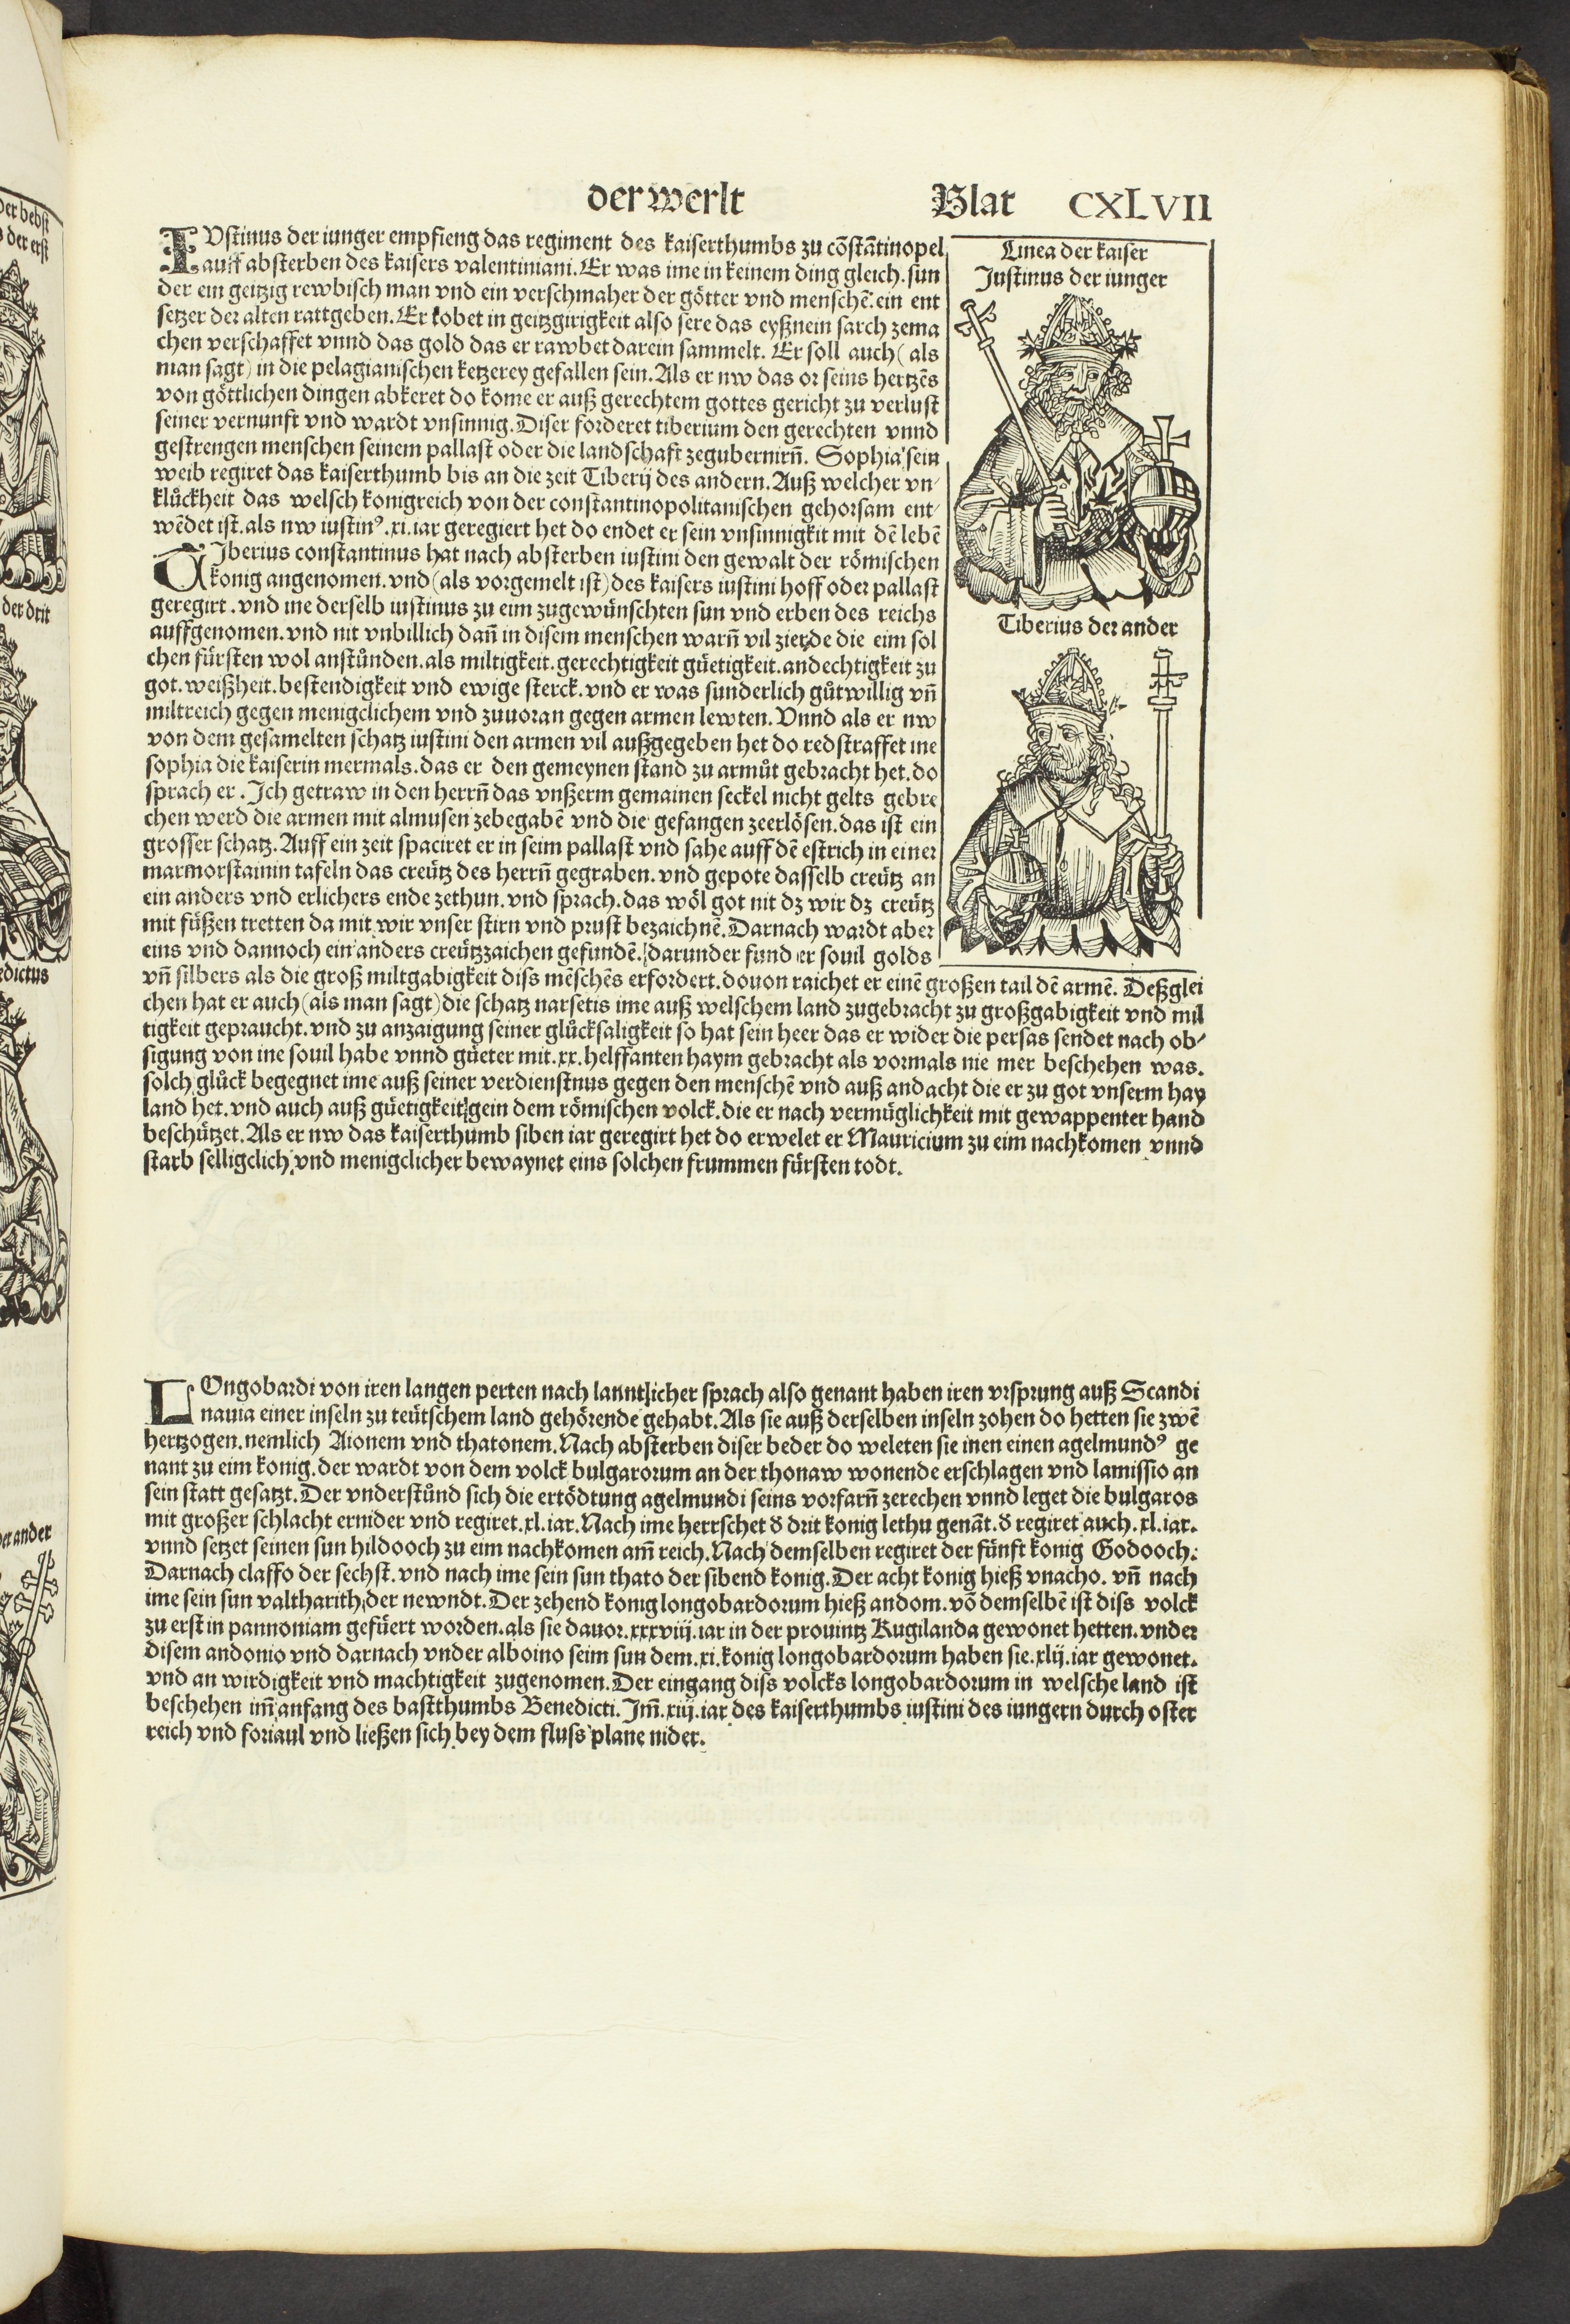 der werlt Blat CXLVII
IVstinus der iunger empfieng das regiment des kaiserthumbs zu cõstãtinopel
auff absterben des kaisers valentiniani. Er was ime in keinem ding gleich. sun
der ein geitzig rewbisch man vnd ein verschmaher der götter vnd menschẽ. ein ent
setzer der alten rattgeben. Er tobet in geitzgirigkeit also sere das eyßnein sarch zema
chen verschaffet vnnd das gold das er rawbet darein sammelt. Er soll auch (als
man sagt) in die pelagianischen ketzerey gefallen sein. Als er nw das or seins hertzẽs
von göttlichen dingen abkeret do kome er auß gerechtem gottes gericht zu verlust
seiner vernunft vnd wardt vnsinnig. Diser forderet tiberium den gerechten vnnd
gestrengen menschen seinem pallast oder die landschaft zegubernirñ. Sophia sein
weib regiret das kaiserthumb bis an die zeit Tiberij des andern. Auß welcher vn/
klůckheit das welsch konigreich von der constantinopolitanischen gehorsam ent/
wẽdet ist. als nw iustinꝰ .xi. iar geregiert het do endet er sein vnsinnigkit mit dẽ lebẽ
TIberius constantinus hat nach absterben iustini den gewalt der römischen
konig angenomen. vnd (als vorgemelt ist) des kaisers iustini hoff oder pallast
geregirt. vnd ine derselb iustinus zu eim zugewünschten sun vnd erben des reichs
auffgenomen. vnd nit vnbillich dañ in disem menschen warñ vil zierde die eim sol
chen fürsten wol anstůnden. als miltigkeit. gerechtigkeit güetigkeit. andechtigkeit zu
got. weißheit. bestendigkeit vnd ewige sterck. vnd er was sunderlich gůtwillig vñ
miltreich gegen menigclichem vnd zuuoran gegen armen lewten. Vnnd als er nw
von dem gesamelten schatz iustini den armen vil außgegeben het do redstraffet ine
sophia die kaiserin mermals. das er den gemeynen stand zu armůt gebracht het. do
sprach er. Ich getraw in den herrñ das vnßerm gemainen seckel nicht gelts gebre
chen werd die armen mit almusen zebegabẽ vnd die gefangen zeerlösen. das ist ein
grosser schatz. Auff ein zeit spaciret er in seim pallast vnd sahe auff dẽ estrich in einer
marmorstainin tafeln das creütz des herrñ gegraben. vnd gepote dasselb creütz an
ein anders vnd erlichers ende zethun. vnd sprach. das wöl got nit dz wir dz creütz
mit füßen tretten da mit wir vnser stirn vnd prust bezaichnẽ. Darnach wardt aber
eins vnd dannoch ein anders creützzaichen gefundẽ. darunder fund er souil golds
vñ silbers als die groß miltgabigkeit diss mẽschẽs erfordert. douon raichet er einẽ großen tail dẽ armẽ. Deßglei
chen hat er auch (als man sagt) die schatz narsetis ime auß welschem land zugebracht zu großgabigkeit vnd mil
tigkeit gepraucht. vnd zu anzaigung seiner glůcksaligkeit so hat sein heer das er wider die persas sendet nach ob/
sigung von ine souil habe vnnd güeter mit .xx. helffanten haym gebracht als vormals nie mer beschehen was.
solch glůck begegnet ime auß seiner verdienstnus gegen den menschẽ vnd auß andacht die er zu got vnserm hay
land het. vnd auch auß güetigkeit gein dem römischen volck. die er nach vermüglichkeit mit gewappenter hand
beschützet. Als er nw das kaiserthumb siben iar geregirt het do erwelet er Mauricium zu eim nachkomen vnnd
starb selligclich vnd menigclicher bewaynet eins solchen frummen fürsten todt.
Linea der kaiser
Justinus der iunger
Tiberius der ander
LOngobardi von iren langen perten nach lanntlicher sprach also genant haben iren vrsprung auß Scandi
nauia einer inseln zu teütschem land gehörende gehabt. Als sie auß derselben inseln zohen do hetten sie zwẽ
hertzogen. nemlich Aionem vnd thatonem. Nach absterben diser beder do weleten sie inen einen agelmundꝰ ge
nant zu eim konig. der wardt von dem volck bulgarorum an der thonaw wonende erschlagen vnd lamissio an
sein statt gesatzt. Der vnderstůnd sich die ertödtung agelmundi seins vorfarñ zerechen vnnd leget die bulgaros
mit großer schlacht ernider vnd regiret .xl. iar. Nach ime herrschet d drit konig lethu genãt. d regiret auch .xl. iar.
vnnd setzet seinen sun hildooch zu eim nachkomen am̃ reich. Nach demselben regiret der fünft konig Godooch.
Darnach claffo der sechst. vnd nach ime sein sun thato der sibend konig. Der acht konig hieß vnacho. vñ nach
ime sein sun valtharith der newndt. Der zehend konig longobardorum hieß andom. võ demselbẽ ist diss volck
zu erst in pannoniam gefüert worden. als sie dauor .xxxviij. iar in der prouintz Rugilanda gewonet hetten. vnder
disem andonio vnd darnach vnder alboino seim sun dem .xi. konig longobardorum haben sie .xlij. iar gewonet.
vnd an wirdigkeit vnd machtigkeit zugenomen. Der eingang diss volcks longobardorum in welsche land ist
beschehen im̃ anfang des bastthumbs Benedicti. Im̃ .xij. iar des kaiserthumbs iustini des iungern durch oster
reich vnd foriaul vnd ließen sich bey dem fluss plane nider.
der bebst
der erst
der drit
dictus
der ander